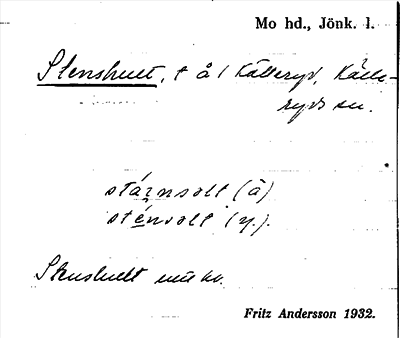 Mo hd., Jönk. l.
Stenshult, t å 1 Källeryd, Källe-
ryds sn.
stáznsolt (ä)
sténsolt (y.).
Stenshult
Fritz Andersson 1932.